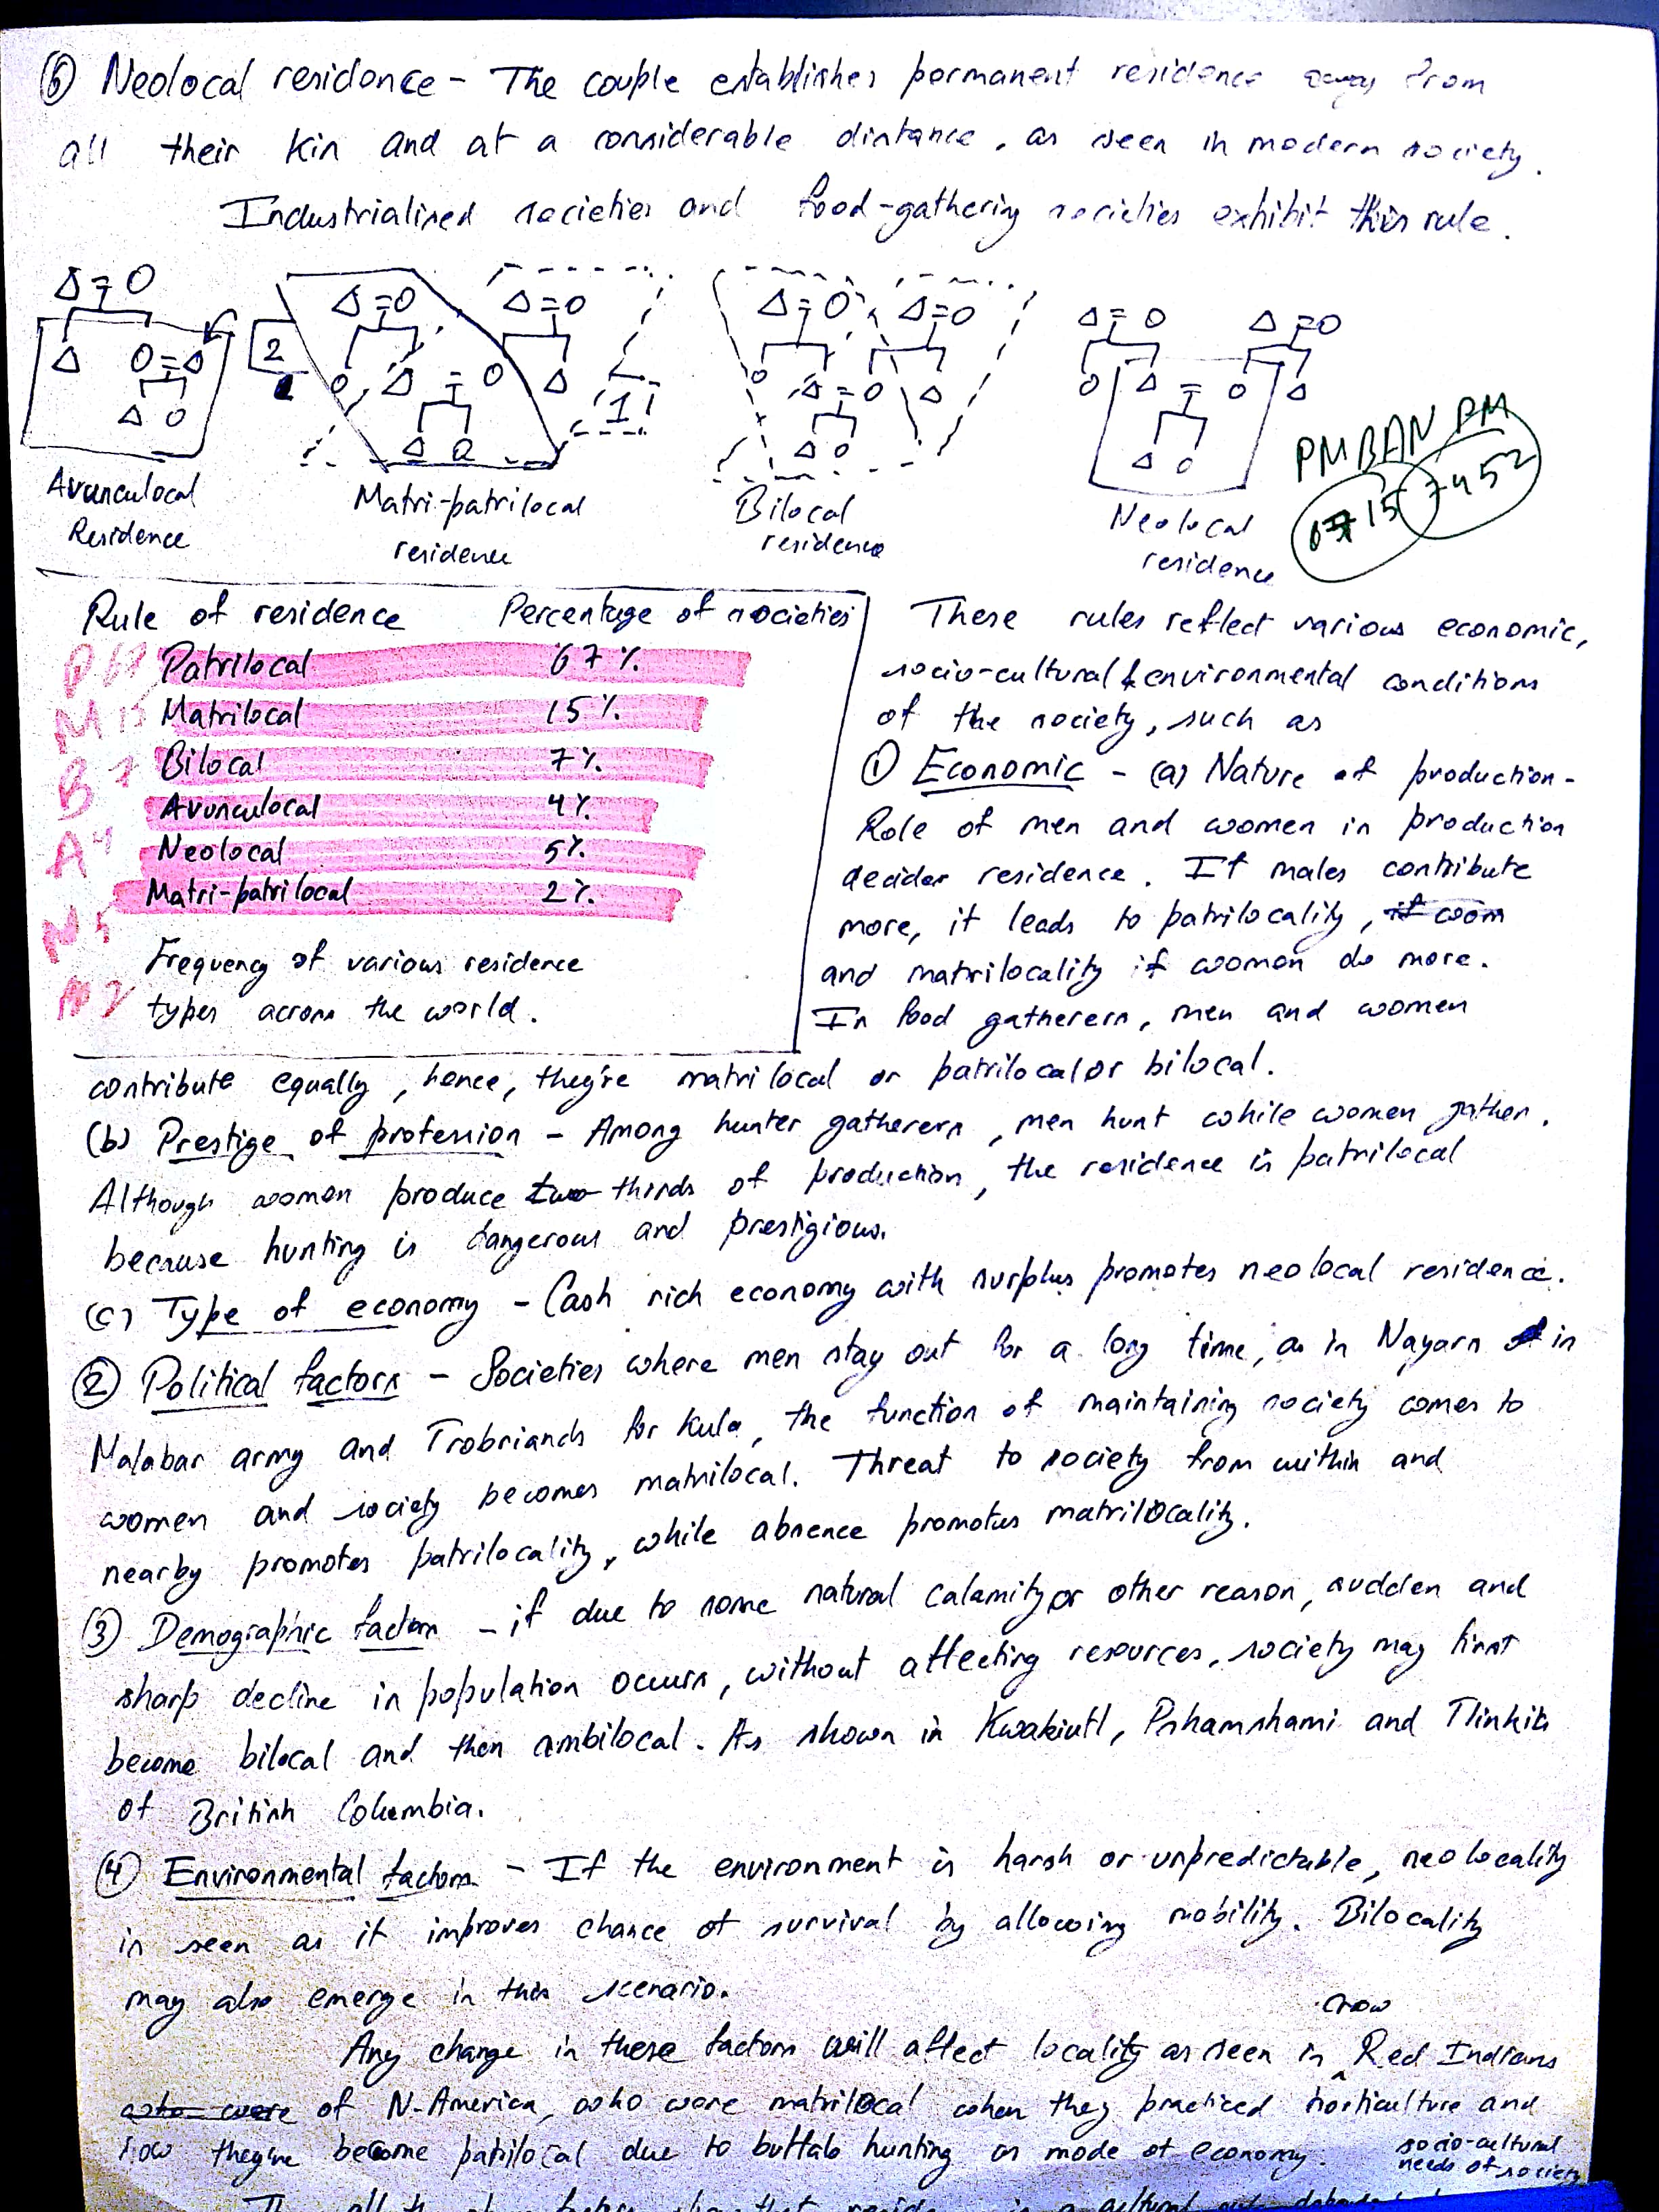 ⑥ Neolocal residence - The couple establishes permanent residence away from
all their kin and at a considerable distance, as seen in modern society.
Industrialised societies and food-gathering societies exhibit this rule.
2
1
Avunculocal
Residence
Matri-patrilocal
residence
Bilocal
residence
Neolocal
residence
PMBAN PM
6715 7452
Rule of residence Percentage of societies
P 67 Patrilocal 67%
M 15 Matrilocal 15%
B 7 Bilocal 7%
A 4 Avunculocal 4%
N 5 Neolocal 5%
2 Matri-patrilocal 2%
Frequency of various residence
types across the world.
These rules reflect various economic,
socio-cultural & environmental conditions
of the society, such as
① Economic - (a) Nature of production -
Role of men and women in production
decides residence. If males contribute
more, it leads to patrilocality, if wom
and matrilocality if women do more.
In food gatherers, men and women
contribute equally, hence, they're matrilocal or patrilocal or bilocal.
(b) Prestige of profession - Among hunter gatherers, men hunt while women gather.
Although women produce two thirds of production, the residence is patrilocal
because hunting is dangerous and prestigious.
(c) Type of economy - Cash rich economy with surplus promotes neolocal residence.
② Political factors - Societies where men stay out for a long time, as in Nayars in
Malabar army and Trobriands for Kula, the function of maintaining society comes to
women and society becomes matrilocal. Threat to society from within and
nearby promotes patrilocality, while absence promotes matrilocality.
③ Demographic factors - if due to some natural calamity or other reason, sudden and
sharp decline in population occurs, without affecting resources, society may first
become bilocal and then ambilocal. As shown in Kwakiutl, Pshamshami and Tlinkits
of British Columbia.
④ Environmental factors - If the environment is harsh or unpredictable, neolocality
is seen as it improves chance of survival by allowing mobility. Bilocality
may also emerge in this scenario.
Any change in these factors will affect locality as seen in Crow Red Indians
who were of N-America, who were matrilocal when they practiced horticulture and
now they've become patrilocal due to buffalo hunting as mode of economy.
socio-cultural
needs of society